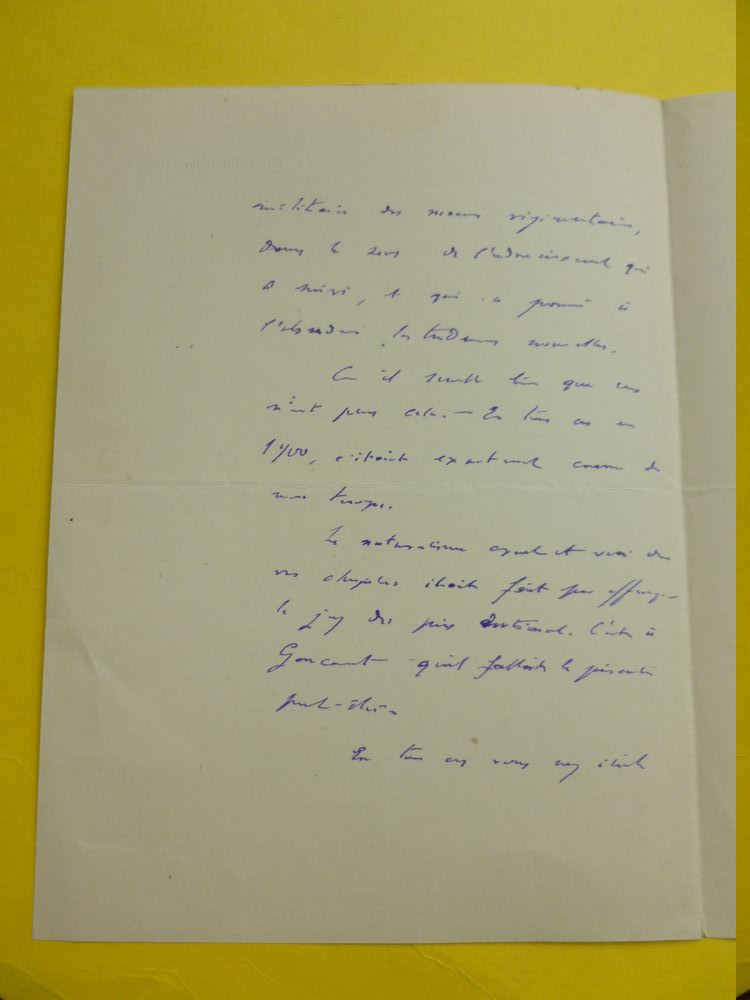 militaire des moeurs régimentaires,
dans le sens de l'adoucissement qui
a suivi, et qui a poussé à
l'absurde, les tendances nouvelles.
Ou il semble bien que ce
n'est pas cela. — En tous cas en
1900, c'était exactement comme de
mon temps.
Le naturalisme et vrai de
vos chapitres était fait pour
le jury du prix national. C'est à
Goncourt qu'il fallait le présenter
peut-être.
En tous cas vous avez